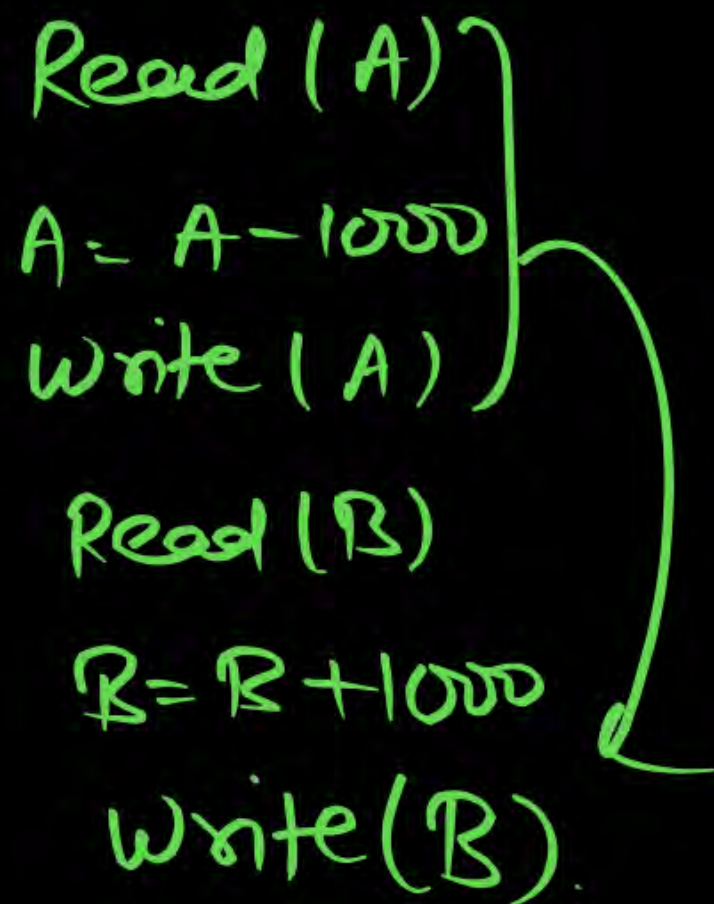 Read (A)
A = A - 1000
Write (A)
Read (B)
B = B + 1000
Write (B).